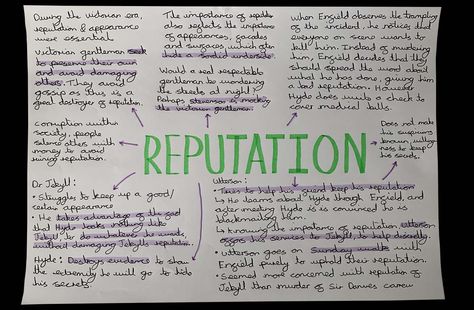 During the victorian era,
reputation & appearance
were essential.
Victorian gentleman seek
to preserve their own
and avoid damaging
others. They avoid
gossip as this is a
great destroyer of reputation.
The importance of reputation
also reflects the importance
of appearances, facades
and surfaces, which often
hide a sordid underside.
Would a real respectable
gentleman be wandering
the streets at night?
Perhaps stevenson is mocking
the victorian gentleman.
When Enfield observes the trampling
of the incident, he notices that
everyone on scene wants to
kill him. Instead of murdering
him, Enfield decides that they
should spread the word about
what he has done, giving him
a bad reputation. However
Hyde gives into a check to
cover medical bills.
Corruption within
society, people
silence others with
money to avoid
ruining reputation.
REPUTATION
Does not make
his suspicions
known, willing-
ness to keep
his secrets.
Dr Jekyll:
• Struggles to keep up a good/
certain appearance
• He takes advantage of the fact
that Hyde looks nothing like
Jekyll to do whatever he wants,
without damaging Jekylls reputation.
Hyde: Destroys evidence to show
the extremity he will go to hide
his secrets
Utterson:
• Tries to help his friend keep his reputation
↳ He learns about Hyde through Enfield, and
after meeting Hyde is convinced he is
blackmailing him.
↳ Knowing the importance of reputation, utterson
offers his services to Jekyll, to help discretly.
• Utterson goes on Sunday walks with
Enfield purely to uphold their reputation.
• Seemed more concerned with reputation of
Jekyll than murder of Sir Danvers carew